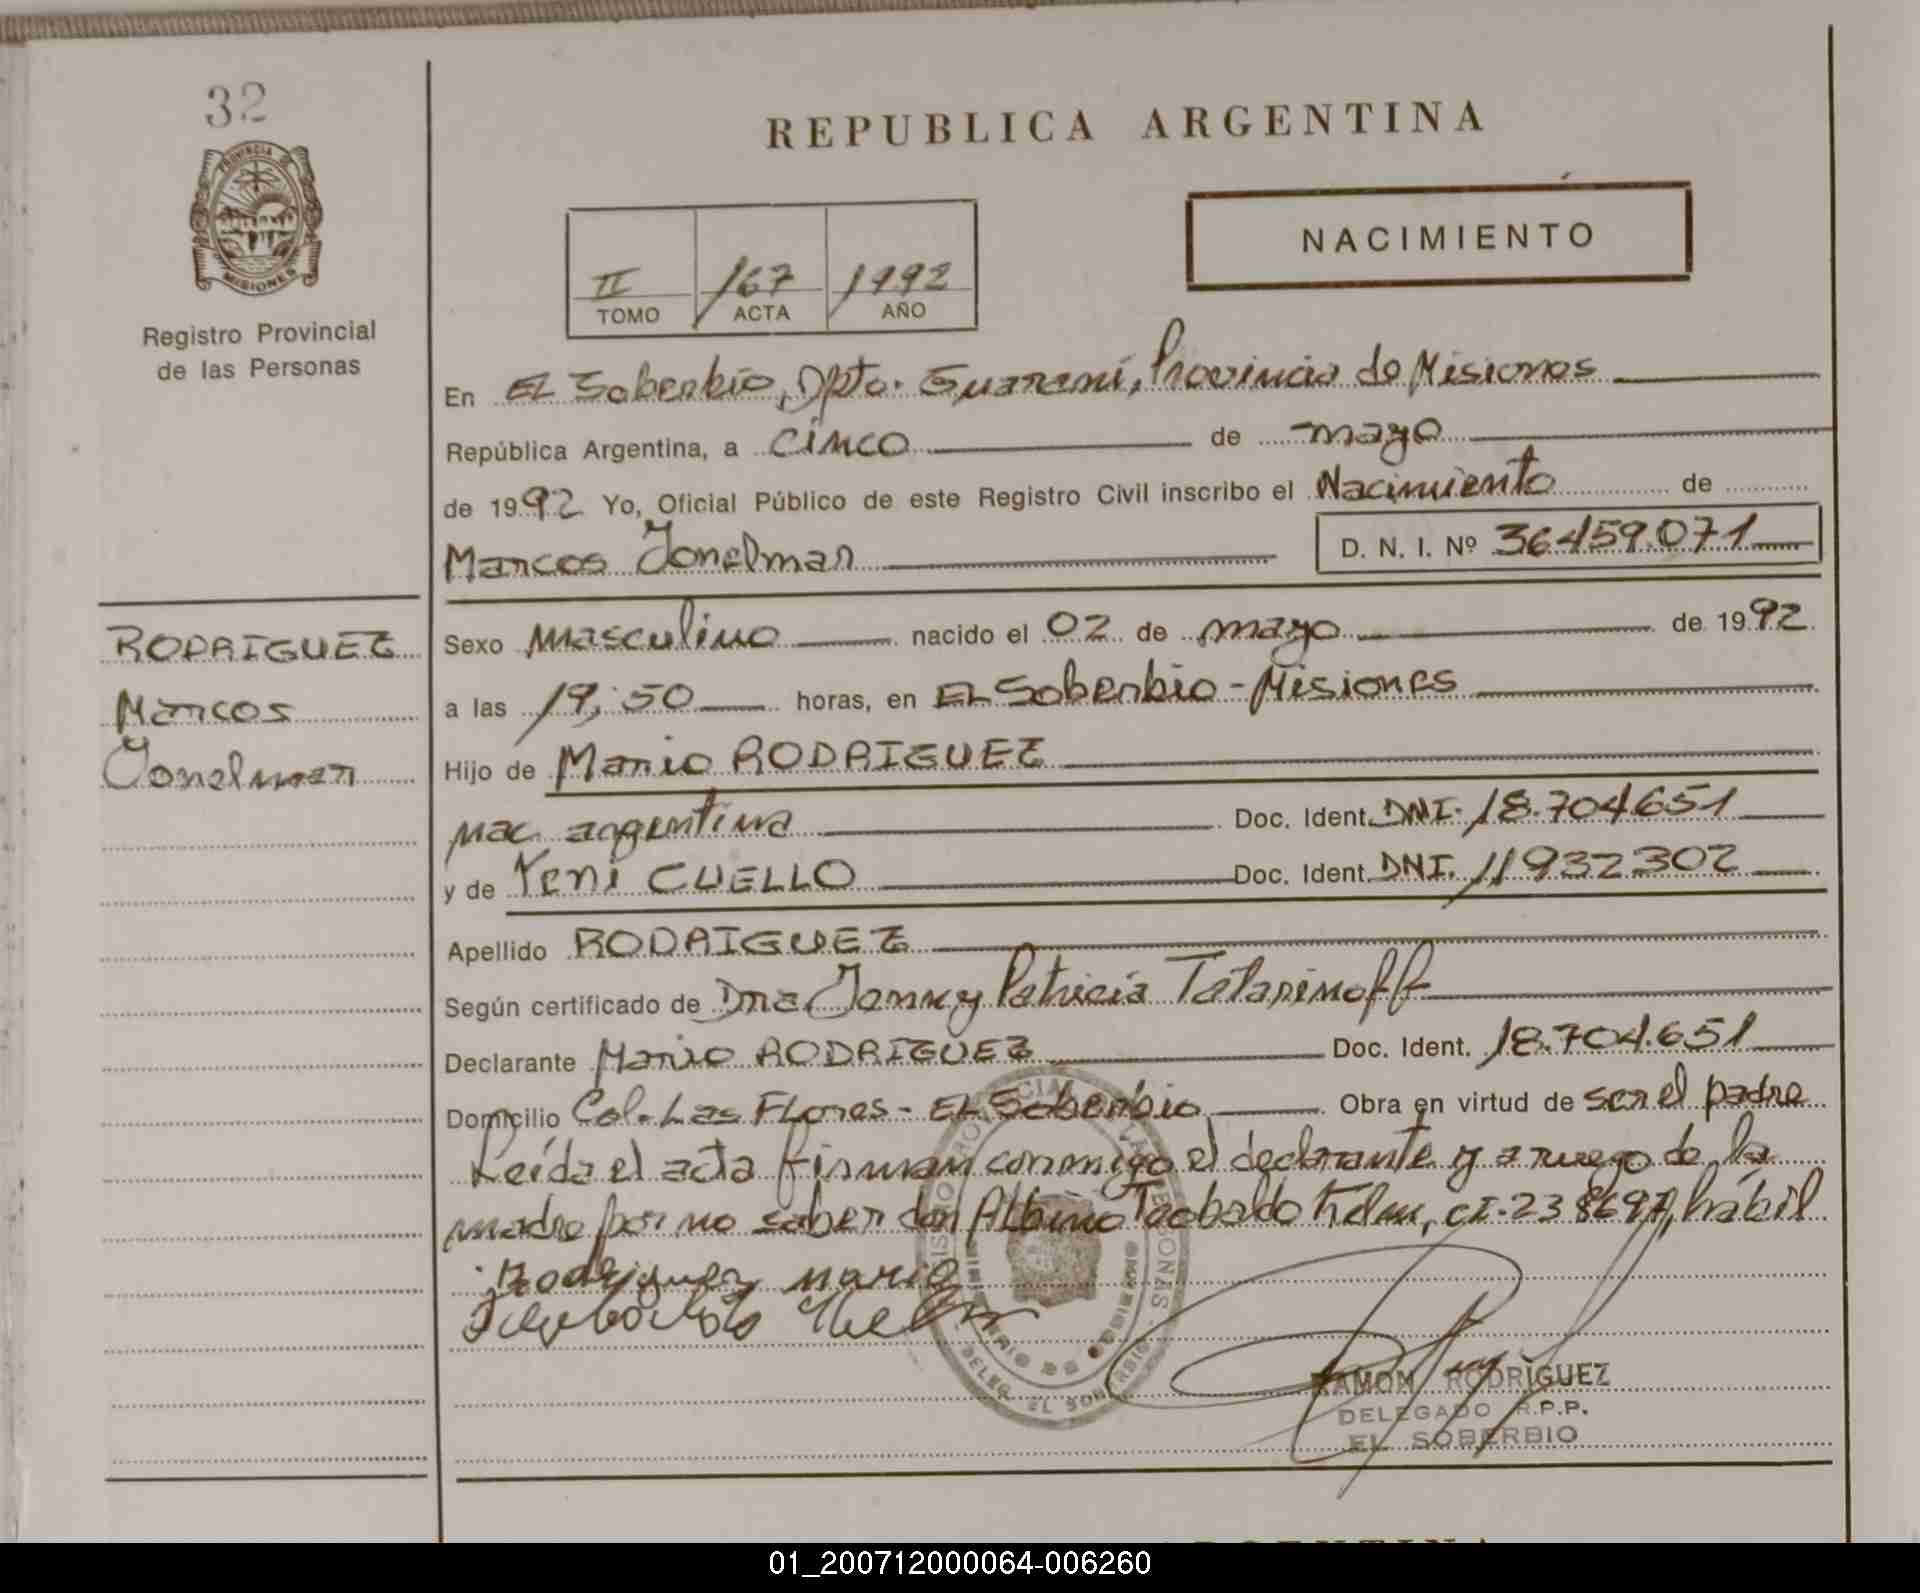 32
PROVINCIA DE
MISIONES
Registro Provincial
de las Personas
REPUBLICA ARGENTINA
NACIMIENTO
II 167 1992
TOMO ACTA AÑO
En EL Soberbio, Dpto. Guaraní, Provincia de Misiones
República Argentina, a cinco de mayo
de 1992 Yo, Oficial Público de este Registro Civil inscribo el Nacimiento de
Marcos Jonelmar D. N. I. Nº 36459.071
RODRIGUEZ
Marcos
Jonelmar
Sexo masculino nacido el 02 de mayo de 1992
a las 19:50 horas, en EL Soberbio - Misiones
Hijo de Mario RODRIGUEZ
nac. argentina Doc. Ident. DNI. 18.704.651
y de Yeni CUELLO Doc. Ident. DNI. 11932302
Apellido RODRIGUEZ
Según certificado de Dra Jenny Patricia Tatarinoff
Declarante Mario RODRIGUEZ Doc. Ident. 18.704.651
Domicilio Col. Las FLores - EL Soberbio Obra en virtud de ser el padre
Leída el acta firman conmigo el declarante y a ruego de la
madre por no saber don Albino Teobaldo hábil
Rodriguez mario
RAMON RODRIGUEZ
DELEGADO R.P.P.
EL SOBERBIO
01_200712000064-006260